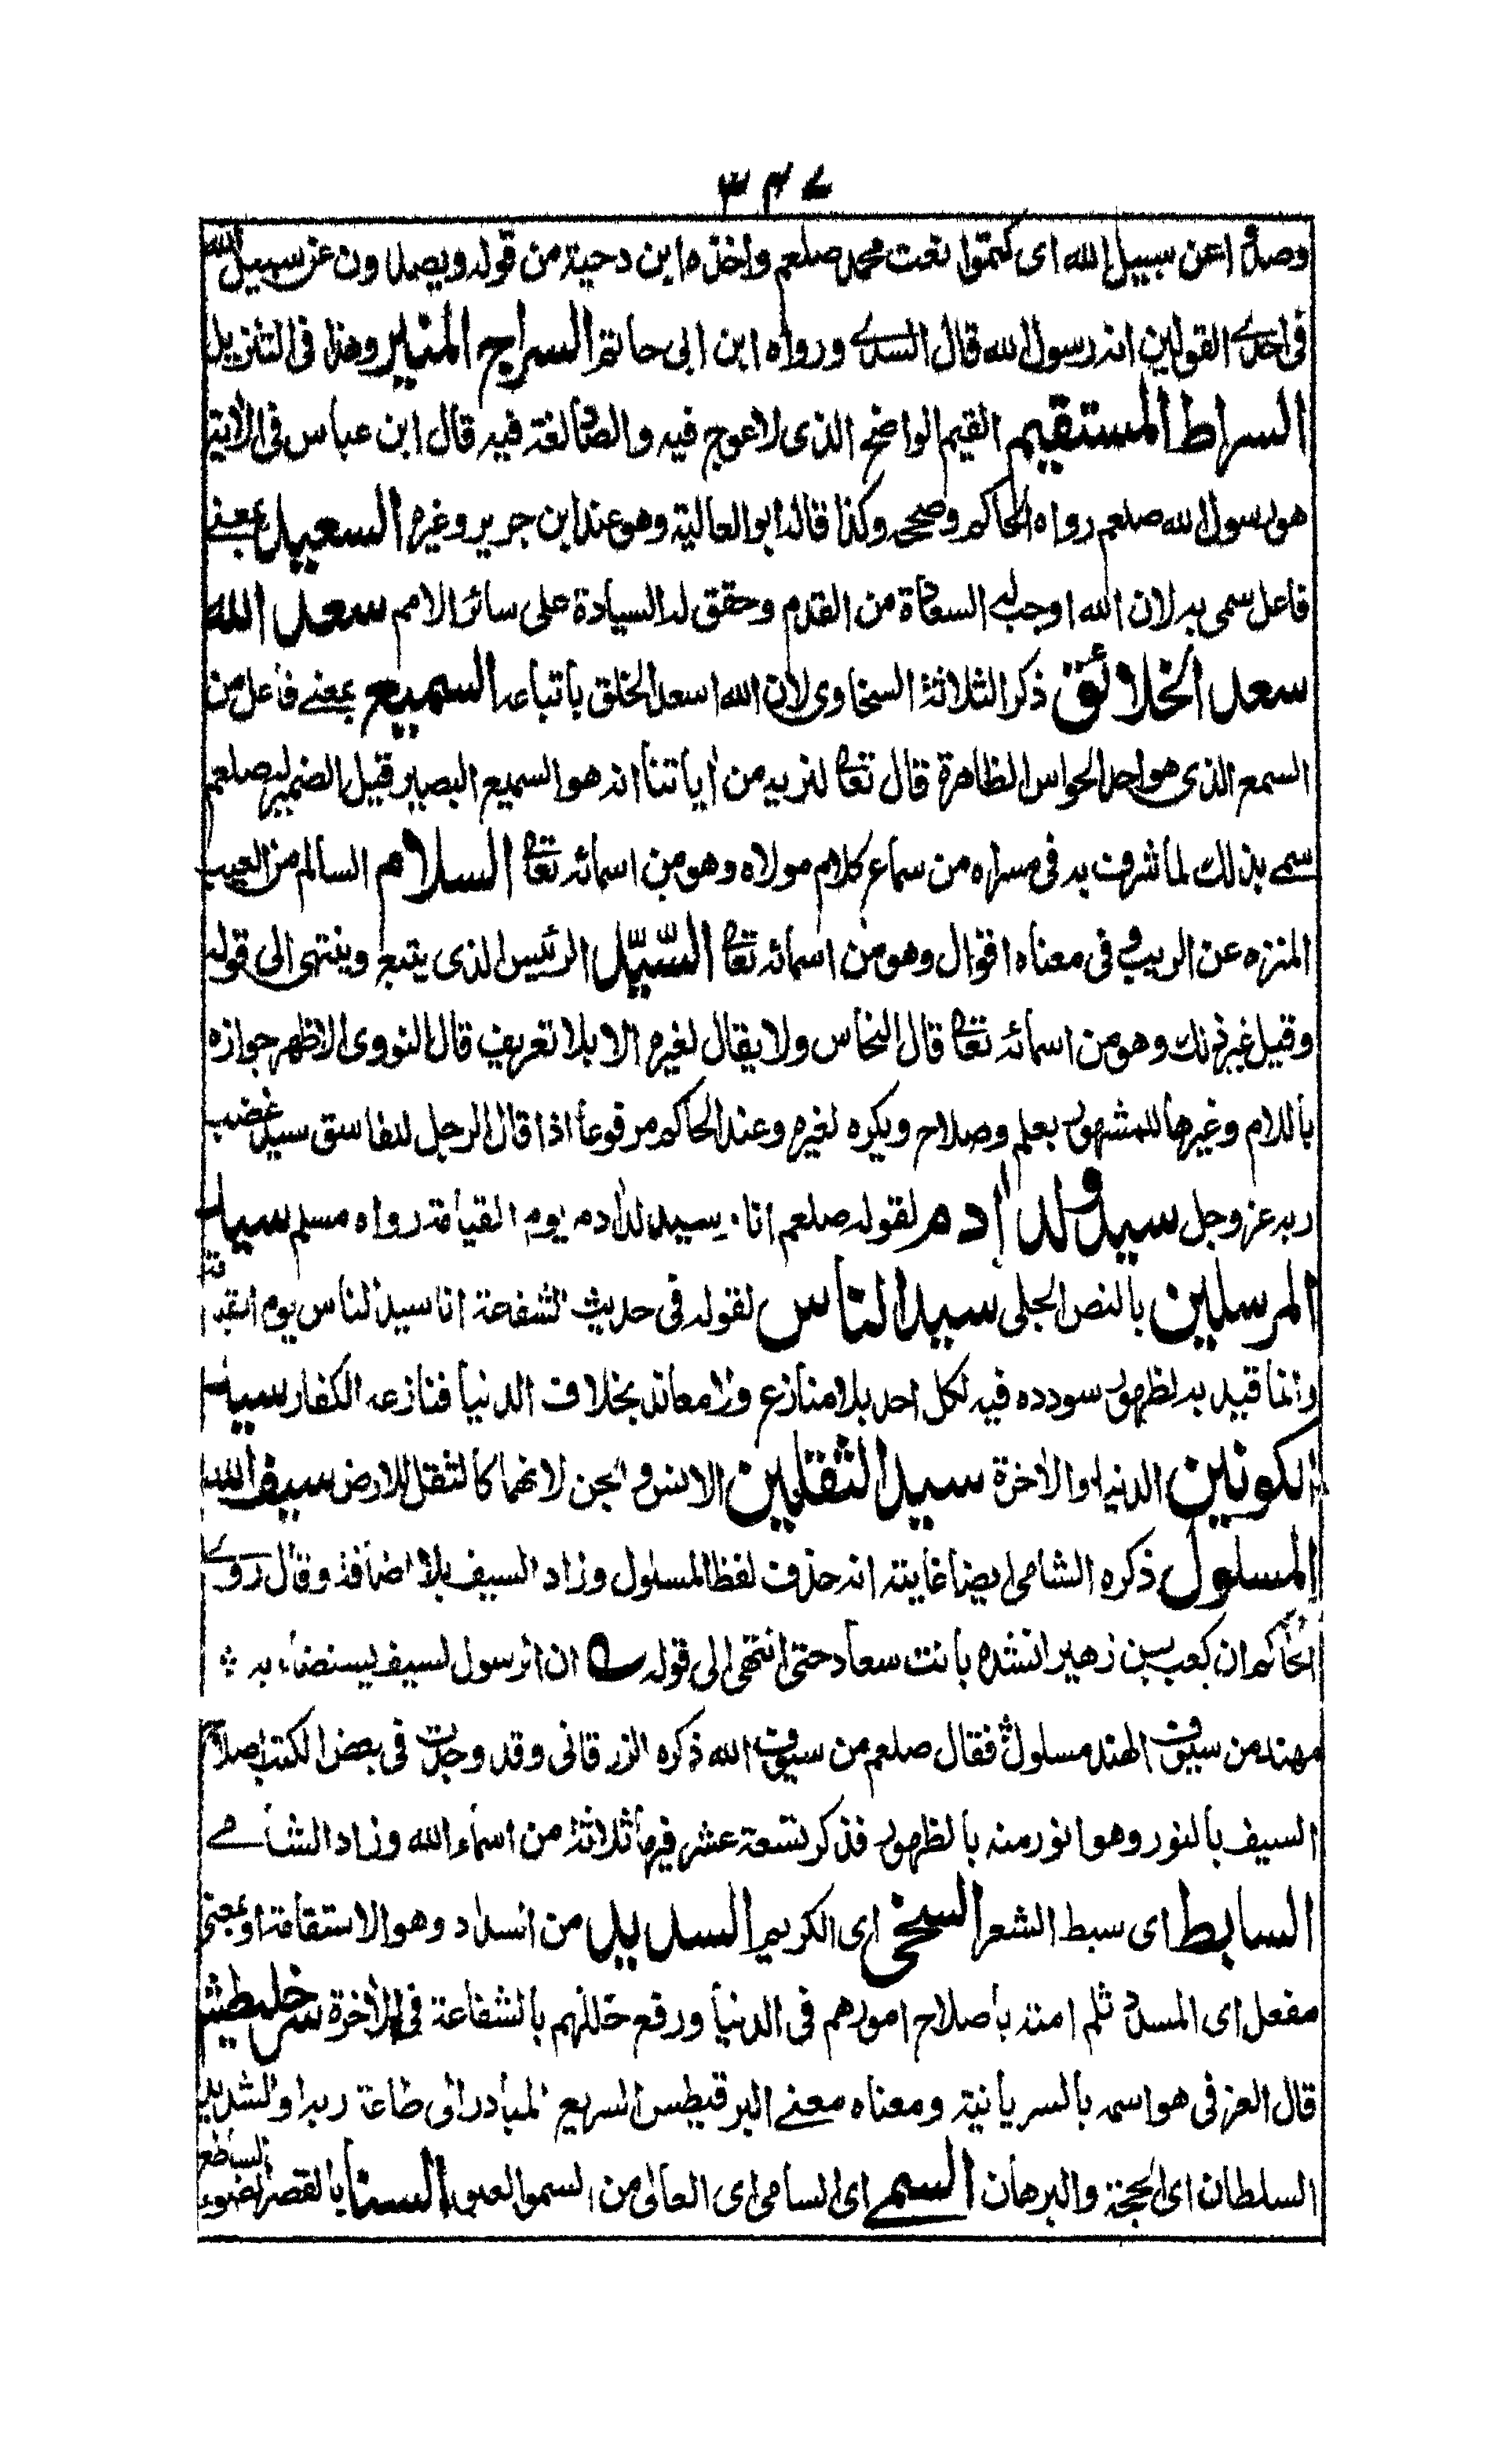 ٣٤٧
وصدوا عن سبيل الله اى كتموا نعت محمد صلعم واخذه ابن دحية من قوله ويصدون عن سبيل الله
فى احدے القولين انه رسول الله قال السدے ورواه ابن ابى حاتم السراج المنير وهذا فى التنزيل
السراط المستقيم القيم الواضح الذى لا عوج فيه والصاد لغة فيه قال ابن عباس فى الاية
هو رسول الله صلعم رواه الحاكم وصححه وكذا قاله ابو العالية وهو عند ابن جرير وغيره السعيد بمعنے
فاعل سمى به لان الله اوجب له السعادة من القدم وحقق له السيادة على سائر الامم سعد الله
سعد الخلائق ذكر الثلاثة السخاوى لان الله اسعد الخلق باتباعه السميع بمعنے فاعل من
السمع الذى هو احد الحواس الظاهرة قال تعا لنريه من اياتنا انه هو السميع البصير قيل الضمير له صلعم
سمے بذلك لما شرف به فى مسراه من سماع كلام مولاه وهو من اسمائه تعا السلام السالم من العيب
المنزه عن الريب و فى معناه اقوال وهو من اسمائه تعا السّيّد الرئيس الذى يتبع وينتهى الى قوله
وقيل غير ذلك وهو من اسمائه تعا قال النحاس ولا يقال لغيره الا بلا تعريف قال النووى الاظهر جوازه
باللام وغيرها للمشهور بعلم وصلاح ويكره لغيره وعند الحاكم مرفوعا اذا قال الرجل للفاسق سيد غضب
ربه عز وجل سيد ولد ادم لقوله صلعم انا سيد ولد ادم يوم القيامة رواه مسلم سيد
المرسلين بالنص الجلى سيد الناس لقوله فى حديث الشفاعة انا سيد الناس يوم القيمة
وانما قيد به لظهور سودده فيه لكل احد بلا منازع ولا معاند بخلاف الدنيا فنازعه الكفار سيد
الكونين الدنيا والاخرة سيد الثقلين الانس والجن لانهما كالثقل للارض سيف الله
المسلول ذكره الشامى ايضا غايته انه حذف لفظ المسلول وزاد السيف بلا اضافة وقال روے
الحاكم ان كعب بن زهير انشده بانت سعاد حتى انتهى الى قوله ؎ ان الرسول لسيف يستضاء به ؞
مهند من سيوف الهند مسلول فقال صلعم من سيوف الله ذكره الزرقانى وقد وجدت فى بعض الكتب اصلاح
السيف بالنور وهو انور منه بالظهور فذكر تسعة عشر فيها ثلاثة من اسماء الله وزاد الشامے
السابط اى سبط الشعر السخى اى الكريم السديد من السداد وهو الاستقامة او بمعنى
مفعل اى المسدد ثلم امته باصلاح امورهم فى الدنيا ورفع خللهم بالشفاعة فى الاخرة سرخليطيش
قال العزفى هو اسمه بالسريانية ومعناه معنے البرقليطس السريع المبادر الى طاعة ربه او الشديد
السلطان اى الحجة والبرهان السمے اى السامى اى العالى من السمو العلو السنا بالقصر الضوء الساطع